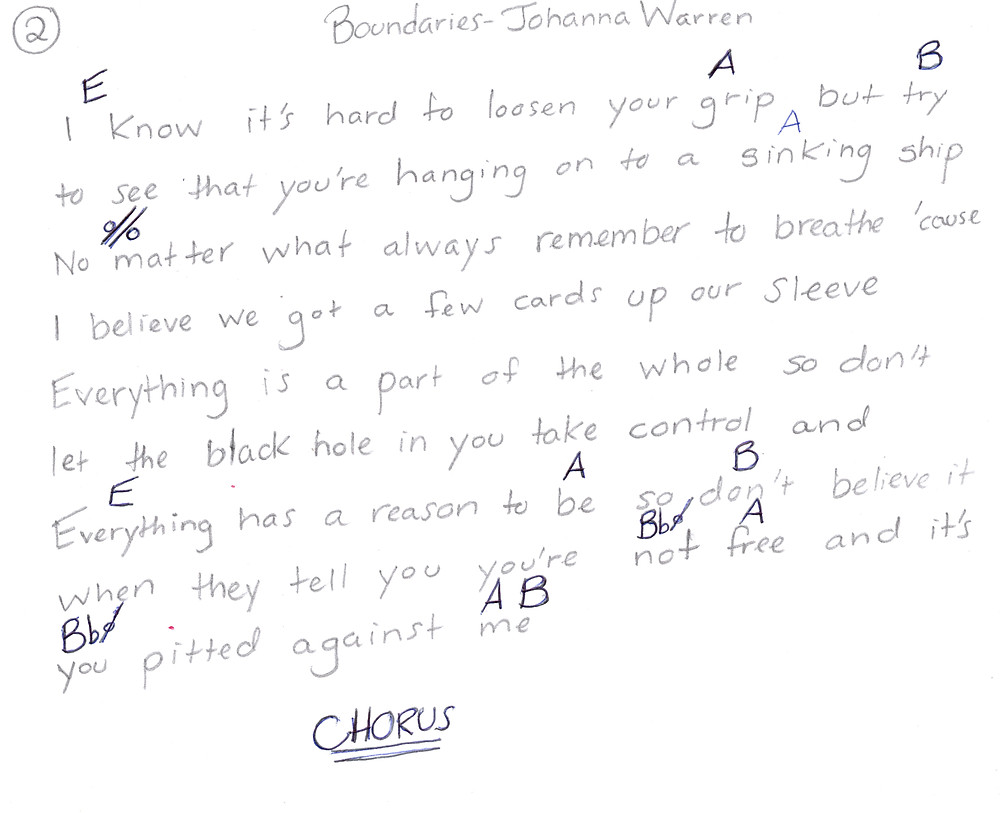 ② Boundaries - Johanna Warren
E A B
I know it's hard to loosen your grip, but try
A
to see that you're hanging on to a sinking ship
%
No matter what always remember to breathe 'cause
I believe we got a few cards up our sleeve
Everything is a part of the whole so don't
let the black hole in you take control and
E A B
Everything has a reason to be so don't believe it
Bbø A
when they tell you you're not free and it's
Bbø A B
you pitted against me
CHORUS